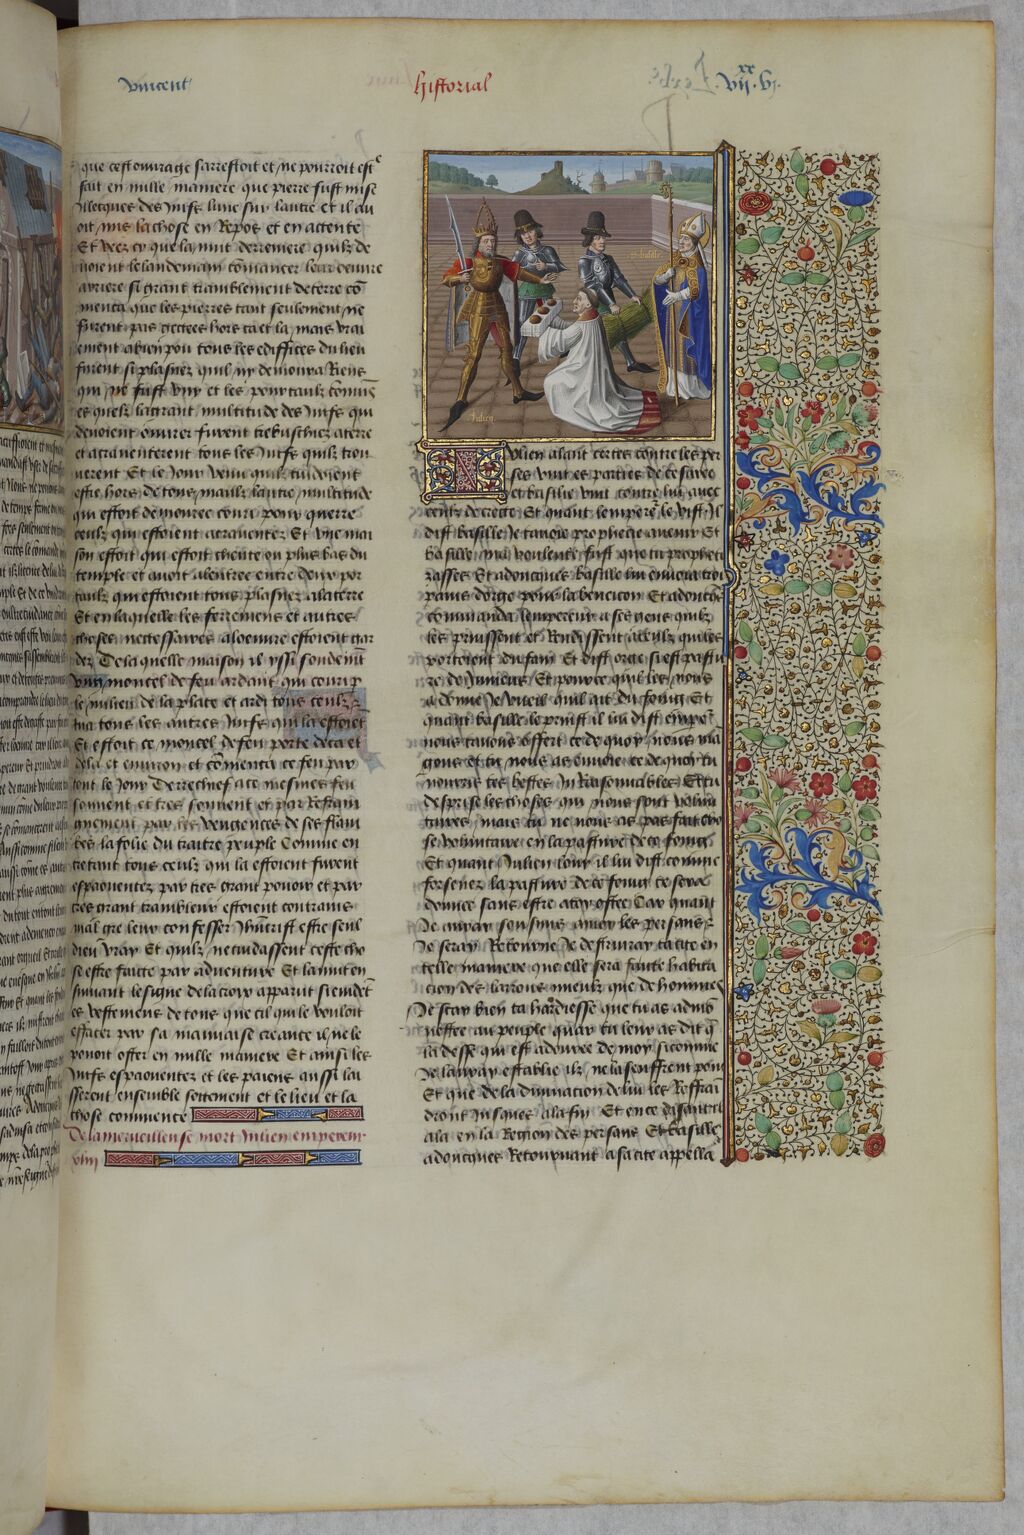 vincent
historial
vijxx. vj.
que cest ouvrage sarrestoit et ne pourroit estre
fait en mille maniere que pierre fust mise
illecques des iuifs lune sur lautre et il eu
oit mis la chose en Repos et en actente
Et veez cy que la nuit derreniere quilz de
uoient lelandemain commancer leur oeuure
auvere si grant tramblement de terre com
menca que les pierres tant seulement ne
furent pas gectees hors ca et la mais vrai
ement a bien pou tous les ediffices du lieu
furent si plasnez quil ny demoura Riens
qui ne fust vny et les pourtaulx communs
es quelz la grant multitude des iuifs qui
deuoient ouurer furent trebuschiez a terre
et agrauenterent tous les Juifs quilz trou
uerent Et le Jour venu quilz cuidoient
estre hors de tous maulx lautre multitude
qui estoit demouree couri pour querre
ceulx qui estoient acrauentez Et vne mai
son estoit qui estoit cheute ou plus bas du
temple et auoit a lentree entre deux por
taulx qui estoient tous plasnez a la terre
Et en laquelle les ferremens et autres
choses neccessaires a loeuure estoient gar
dez De laquelle maison il yssi soudeinement
vng moncel de feu ardant qui couru par
le milieu de la place et ardi tous ceulx et
tua tous les autres Juifs qui la estoient
Et estoit ce moncel de feu porte deca et
dela et enuiron et commenca ce feu par
tout le Jour Derrechief a ce mesmes feu
souuent et tres souuent et par Restrain
gnement par les vengences de ses flam
bes la folie du traitre peuple Comme en
ce tant tous ceulx qui la estoient furent
espaouentez par tres grant pouoir et par
tres grant trambleur estoient contrains
mal gre leur confesser Jhesucrist estre seul
dieu vray Et quilz ne cuidassent ceste cho
se estre faicte par aduenture Et la nuit en
suiuant le signe de la croix apparut si euident
es vestemens de tous que cil qui le vouloit
effacer par sa mauuaise creance il ne le
pouoit oster en mille maniere Et ainsi les
Juifs espaouentez et les paiens aussi lai
sserent ensemble sottement et le lieu et la
chose commencee
De la merveilleuse mort Julien empereur
xliiij
s. basille
Julien
Julien alant certes contre les per
ses vint es parties de cesaree
et basille vint contre lui auec
ceulx de crete Et quant lempereur le vist Il
dist basille Je tauoie prophecie auenir Et
basille ma voulente fust que tu propheti
zasses Et adoncques basille lui enuoia troi
pains dorge pour la beneicon Et adonc
commanda lempereur a ses gens quilz
les prinssent et Rendissent a ceulx qui les
portoient du fain Et dist orge si est pastu
re de Jumens Et pource quil les nous
a donne Je vueil quil ait du foing Et
quant basille le prinst il lui dist empereur
nous tauons offert ce de quoy nous man
gons et tu nous as enuoie ce de quoy tu
nourris tes bestes In Raisonnables Et tu
desprise les choses qui nous sont volun
taires mais tu ne nous as pas fait cho
se voluntaire en la pasture de ce foing
Et quant Julien louy il lui dist comme
forsenez la pasture de ce foing te sera
donnee sans estre a toy ostee Car quant
Je auray soubmis a moy les persans et
Je seray Retourne Je destruiray ta cite en
telle maniere que elle sera faicte habita
cion des larrons mieulx que de hommes
Je scay bien ta hardiesse que tu as admo
nestee au peuple quar tu leur as dit que
la desse qui est adouree de moy si comme
Je lauray establie ilz ne la seuffrent point
Et que de la diuination de lui les Reffrai
dront Jusques a la fin Et en ce disant il
ala en la Region des persans Et basille
adoncques Retournant a sa cite appella